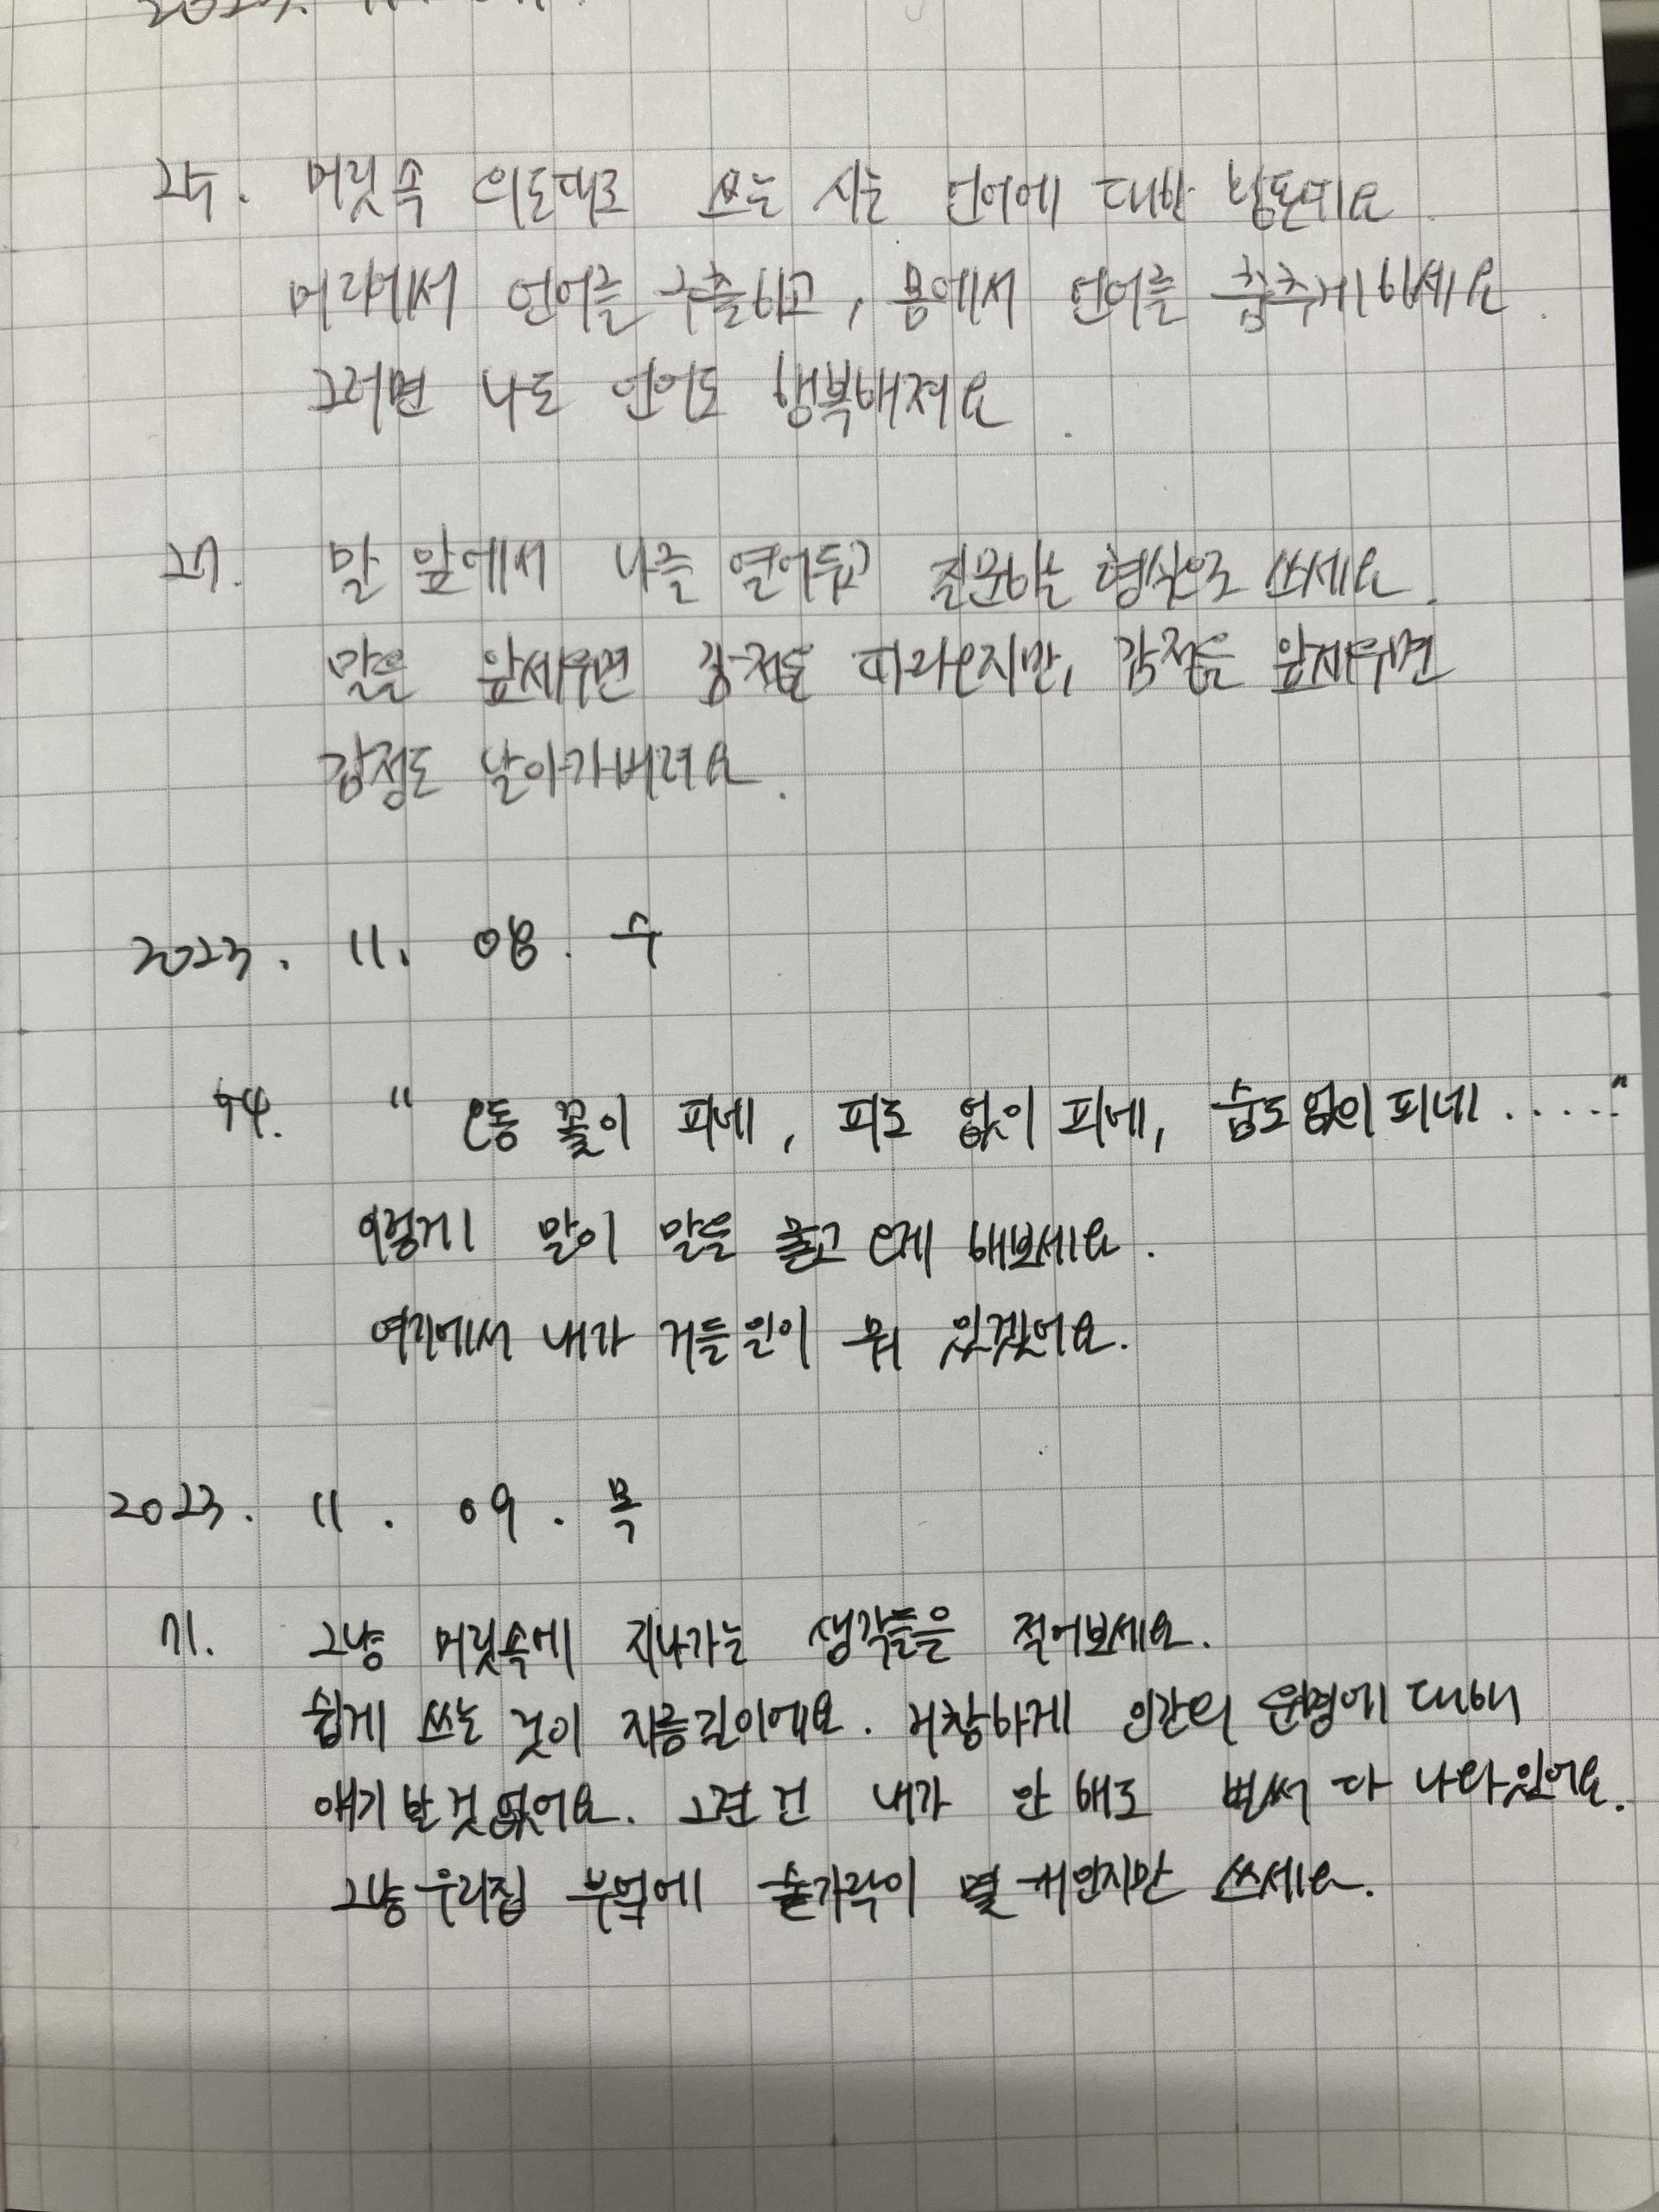 25. 머릿속 의도대로 쓰는 시는 언어에 대한 범죄예요.
머리에서 언어를 구출하고, 몸에서 언어를 춤추게하세요.
그러면 나도 언어도 행복해져요.
27. 말 앞에서 나를 열어두고 질문하는 형식으로 쓰세요.
말을 앞세우면 감정도 따라오지만, 감정을 앞세우면
감정도 날아가버려요.
2023. 11. 08. 수
54. " 온통 꽃이 피네, 피도 없이 피네, 숨도없이 피네....."
이렇게 말이 말을 물고 오게 해보세요.
여기에서 내가 거들일이 뭐 있겠어요.
2023. 11. 09. 목
71. 그냥 머릿속에 지나가는 생각들을 적어보세요.
쉽게 쓰는 것이 지름길이에요. 거창하게 인간의 운명에 대해
얘기 할 것 없어요. 그런 건 내가 안 해도 벌써 다 나와있어요.
그냥 우리집 부엌에 숟가락이 몇 개인지만 쓰세요.